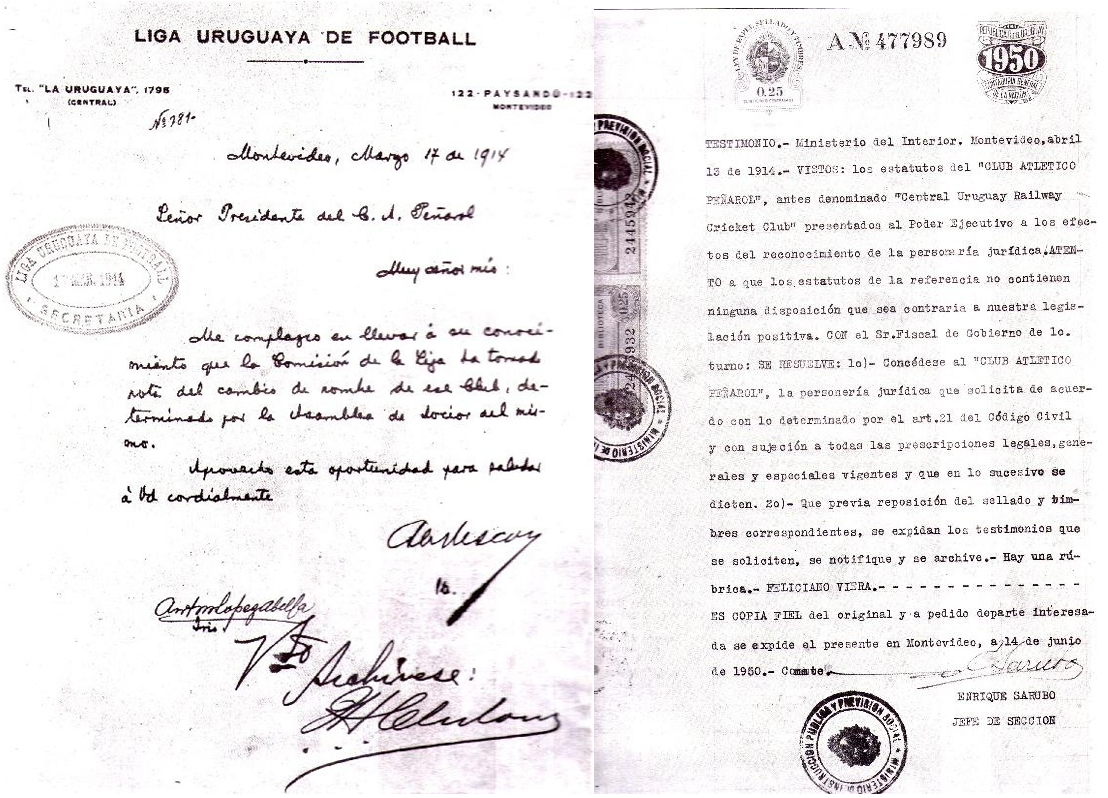 LIGA URUGUAYA DE FOOTBALL
TEL. "LA URUGUAYA", 1795
(CENTRAL)
122-PAYSANDÚ-122
MONTEVIDEO
Nº 781-
Montevideo, Marzo 17 de 1914
Señor Presidente del C. A. Peñarol
Muy señor mio:
LIGA URUGUAYA DE FOOTBALL
1914
SECRETARIA
Me complazco en llevar á su conoci-
miento que la Comisión de la Liga ha tomado
nota del cambio de nombre de ese Club, de-
terminado por la Asamblea de socios del mis-
mo.
Aprovecho esta oportunidad para saludar
á Vd cordialmente
Archivese:
LEY DE PAPEL SELLADO Y TIMBRES
0.25
A Nº 477989
1950
TESTIMONIO.- Ministerio del Interior. Montevideo, abril
13 de 1914.- VISTOS: los estatutos del "CLUB ATLETICO
PEÑAROL", antes denominado "Central Uruguay Railway
Cricket Club" presentados al Poder Ejecutivo a los efec-
tos del reconocimiento de la personería jurídica.ATEN-
TO a que los estatutos de la referencia no contienen
ninguna disposición que sea contraria a nuestra legis-
lación positiva. CON el Sr.Fiscal de Gobierno de 1o.
turno: SE RESUELVE: 1o)- Concédese al "CLUB ATLETICO
PEÑAROL", la personería jurídica que solicita de acuer-
do con lo determinado por el art.21 del Código Civil
y con sujeción a todas las prescripciones legales,gene-
rales y especiales vigentes y que en lo sucesivo se
dicten. 2o)- Que previa reposición del sellado y tim-
bres correspondientes, se expidan los testimonios que
se soliciten, se notifique y se archive.- Hay una rú-
brica.- FELICIANO VIERA.- - - - - - - - - - - - - - -
ES COPIA FIEL del original y a pedido departe interesa-
da se expide el presente en Montevideo, a 14 de junio
de 1950.-
ENRIQUE SARUBO
JEFE DE SECCION
INSTRUCCION PUBLICA Y PREVISION SOCIAL